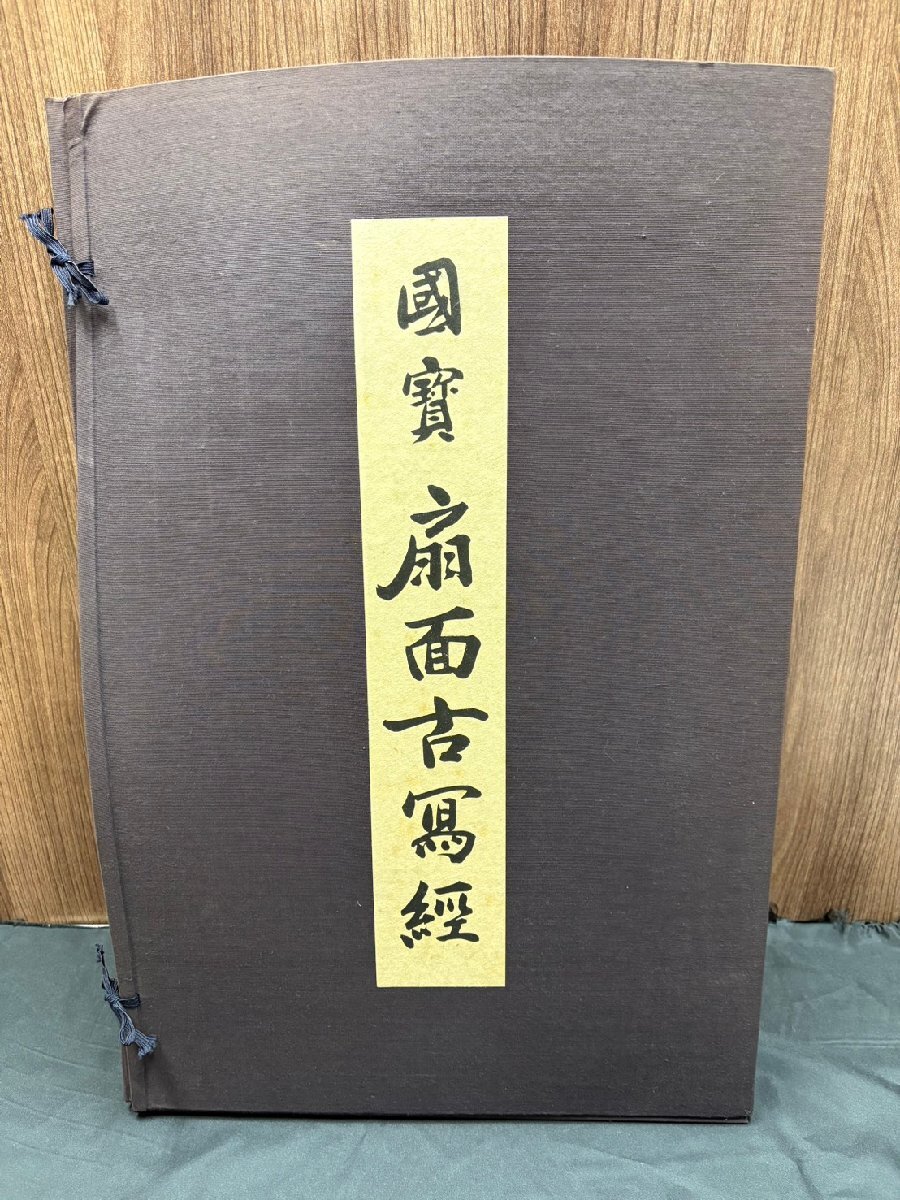 國寶 扇面古寫經